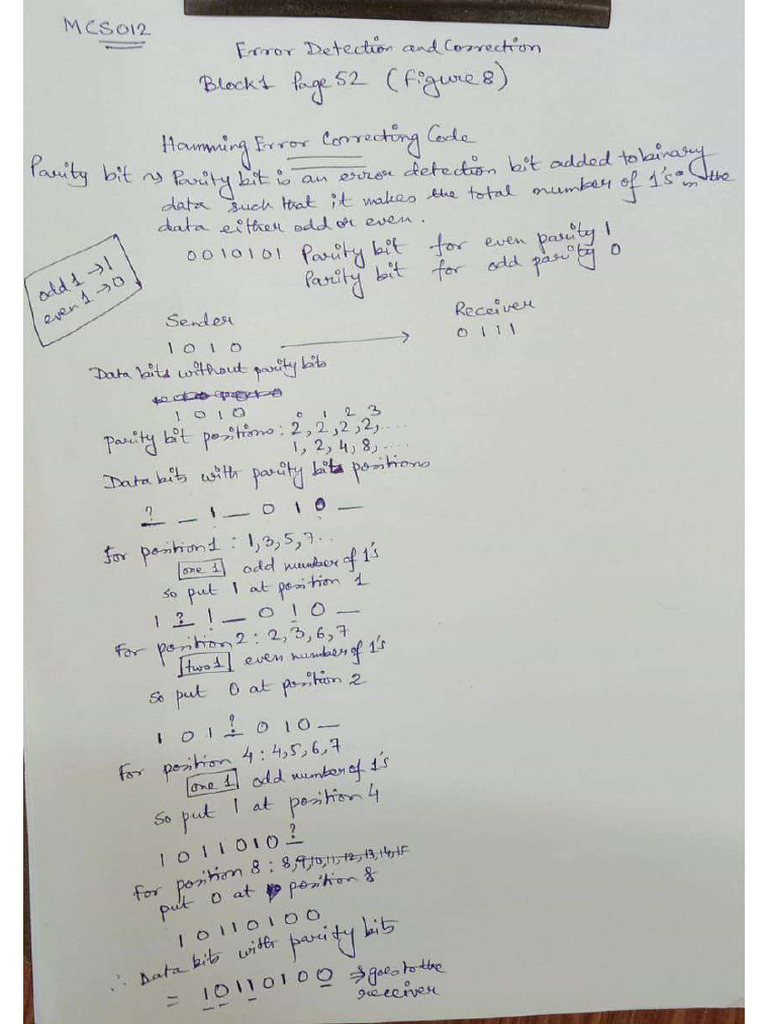 MCS012
Error Detection and Correction
Block1 Page 52 (Figure 8)
Hamming Error Correcting Code
Parity bit → Parity bit is an error detection bit added to binary
data such that it makes the total number of 1's in the
data either odd or even.
0010101 Parity bit for even parity 1
Parity bit for odd parity 0
odd 1 → 1
even 1 → 0
Sender
Receiver
1 0 1 0 → 0 1 1 1
Data bits without parity bits
1 0 1 0
Parity bit positions: 2⁰, 2¹, 2², 2³, ....
1, 2, 4, 8, ....
Data bits with parity bit positions
? _ 1 _ 0 1 0 _
for position 1 : 1,3,5,7..
one 1 odd number of 1's
so put 1 at position 1
1 ? 1 _ 0 1 0 _
for position 2 : 2,3,6,7
two 1 even number of 1's
so put 0 at position 2
1 0 1 ? 0 1 0 _
for position 4 : 4,5,6,7
one 1 odd number of 1's
so put 1 at position 4
1 0 1 1 0 1 0 ?
for position 8 : 8,9,10,11,12,13,14,15
put 0 at position 8
1 0 1 1 0 1 0 0
∴ Data bits with parity bits
= 1 0 1 1 0 1 0 0 ⇒ goes to the
receiver